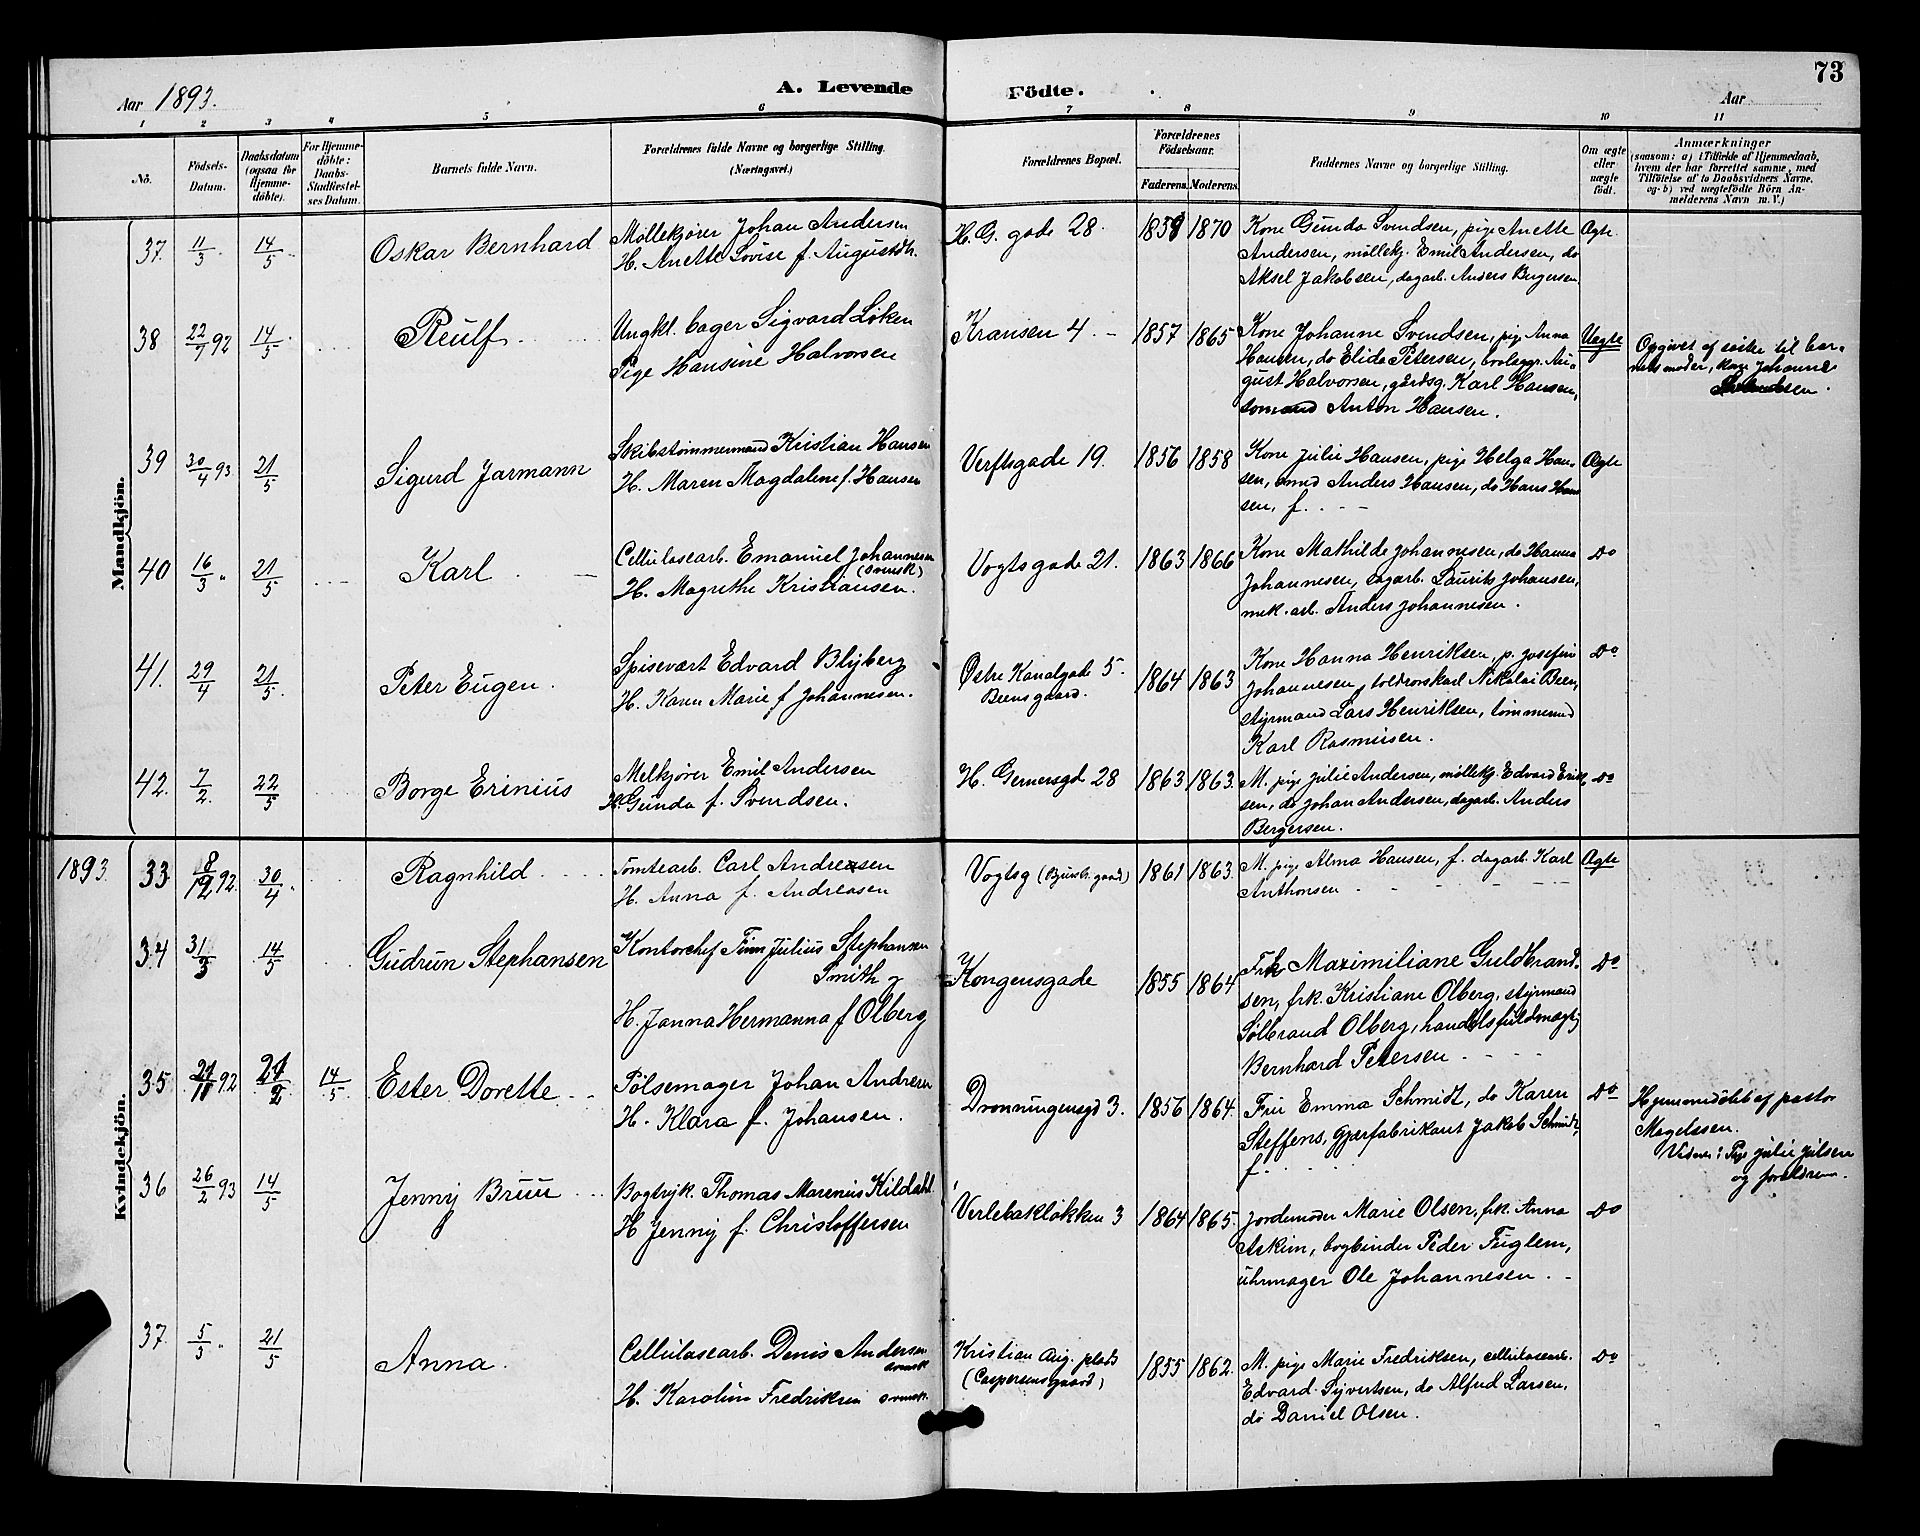 73
Aar 1893.
A. Levende Födte.
Aar
1 2 3 4 5 6 7 8 9 10 11
No.
Födsels-Datum.
Daabsdatum (ogsaa for Hjemme-døbte).
For Hjemme-døbte: Daabs-Stadfæstel-ses Datum.
Barnets fulde Navn.
Forældrenes fulde Navne og borgerlige Stilling.
(Næringsvei.)
Forældrenes Bopæl.
Forældrenes Fødselsaar.
Faderens. Moderens.
Faddernes Navne og borgerlige Stilling.
Om ægte eller uægte født.
Anmærkninger
(saasom: a) i Tilfælde af Hjemmedaab,
hvem der har forrettet samme, med
Tilføielse af to Daabsvidners Navne,
og b) ved uægtefødte Börn An-
melderens Navn m. V.)
Mandkjön.
37. 11/3 14/5 Oskar Bernhard
Møllekjører Johan Andersen
H. Anette Lovise f. Augustdtr.
H. G. gade 28. 1859 1870
Kone Gunda Svendsen, pige Anette
Andersen, møllekj. Emil Andersen, do
Aksel Jakobsen, dagarb. Anders Bergersen
Ægte.
38 22/7 92 14/5 Reulf
Ungkl. bager Sigvard Løken
Pige Hansine Halvorsen
Kransen 4. 1857 1865
Kone Johanne Svendsen, pige Anna
Hansen, do Elida Petersen, boeleggr. Au-
gust Halvorsen, gårdsg. Karl Hansen,
sømand Anton Hansen.
Uægte
Opgivet af søster til bar-
nets moder, kone Johanne
Svendsen.
39 30/4 93 21/5 Sigurd Jarmann
Skibstømmermand Kristian Hansen
H. Maren Magdalene f. Hansen
Verftsgade 19. 1856 1858
Kone Julie Hansen, pige Helga Han-
sen, sømd Anders Hansen, do Hans Han
sen, f.
Ægte
40 16/3 " 21/5 Karl
Cellulosearb. Emanuel Johannesen
(svensk)
H. Magrethe Kristiansen.
Vogtsgade 21. 1863 1866
Kone Mathilde Johannesen, do Hanna
Johannesen, dagarb. Laurits Johansen,
mek. arb. Anders Johannesen.
Do
41. 29/4 21/5. Peter Eugen.
Spisevært Edvard Blyberg
H. Karen Marie f Johannesen.
Østre Kanalgade 5.
Beensgaard.
1864 1863
Kone Hanna Henriksen, p. Josefin
Johannesen, toldrorskarl Nikolai Been,
styrmand Lars Henriksen, tømmermd
Karl Rasmusen.
Do
42. 7/2. 22/5 Borge Erinius
Mølkjører Emil Andersen
H. Gunda f. Svendsen.
H. Gernersgd 28 1863 1863.
M. pige Julie Andersen, møllekj. Edvard Erik
sen, do Johan Andersen, dagarb. Anders
Bergersen.
Do
1893
Kvindekjön.
33 8/12 92. 30/4. Ragnhild
Tomtearb. Carl Andreasen
H. Anna f. Andreasen
Vogtsg 1861 1863.
M. pige Alma Hansen, f. dagarb. Karl
Anthonsen
Ægte
34 31/3 14/5 Gudrun Stephansen
Kontorchef Finn Julius Stephansen
Smith og
H. Janna Hermanna f Olberg
Kongensgade 1855 1864
Frk Maximiliane Guldbrand-
sen, frk. Kristiane Olberg, styrmand
Sølbrand Olberg, handelsfuldmægt.
Bernhard Petersen
Do
35. 21/11 92 21/2 14/5. Ester Dorette
Pølsemager Johan Andresen
H. Klara f. Johansen.
Dronningensgd 3. 1856 1864.
Frue Emma Schmidt, do Karen
Steffens, gjærfabrikant Jakob Schmidt,
f.
Do
Hjemmedøbt af pastor
Magelssen.
Vidner: Pige Julie Julsen
og forældrene.
36 26/2 93 14/5 Jenny Bruu
Bogtryk. Thomas Marenius Kildahl
H Jenny f. Christoffersen
Verlebakløkken 3 1864 1865.
Jordemoder Marie Olsen, frk. Anna
Askim, bogbinder Peder Fuglem,
uhrmager Ole Johannesen.
Do
37. 5/3 " 21/5 Anna.
Cellulosearb. Denis Andersen
svensk
H. Karoline Fredriksen svensk.
Kristian Aug. plads
(Caspersensgaard)
1855 1862.
M. pige Marie Fredriksen, cellulosearb.
Edvard Syvertsen, do Alfred Larsen,
do Daniel Olsen.
Do